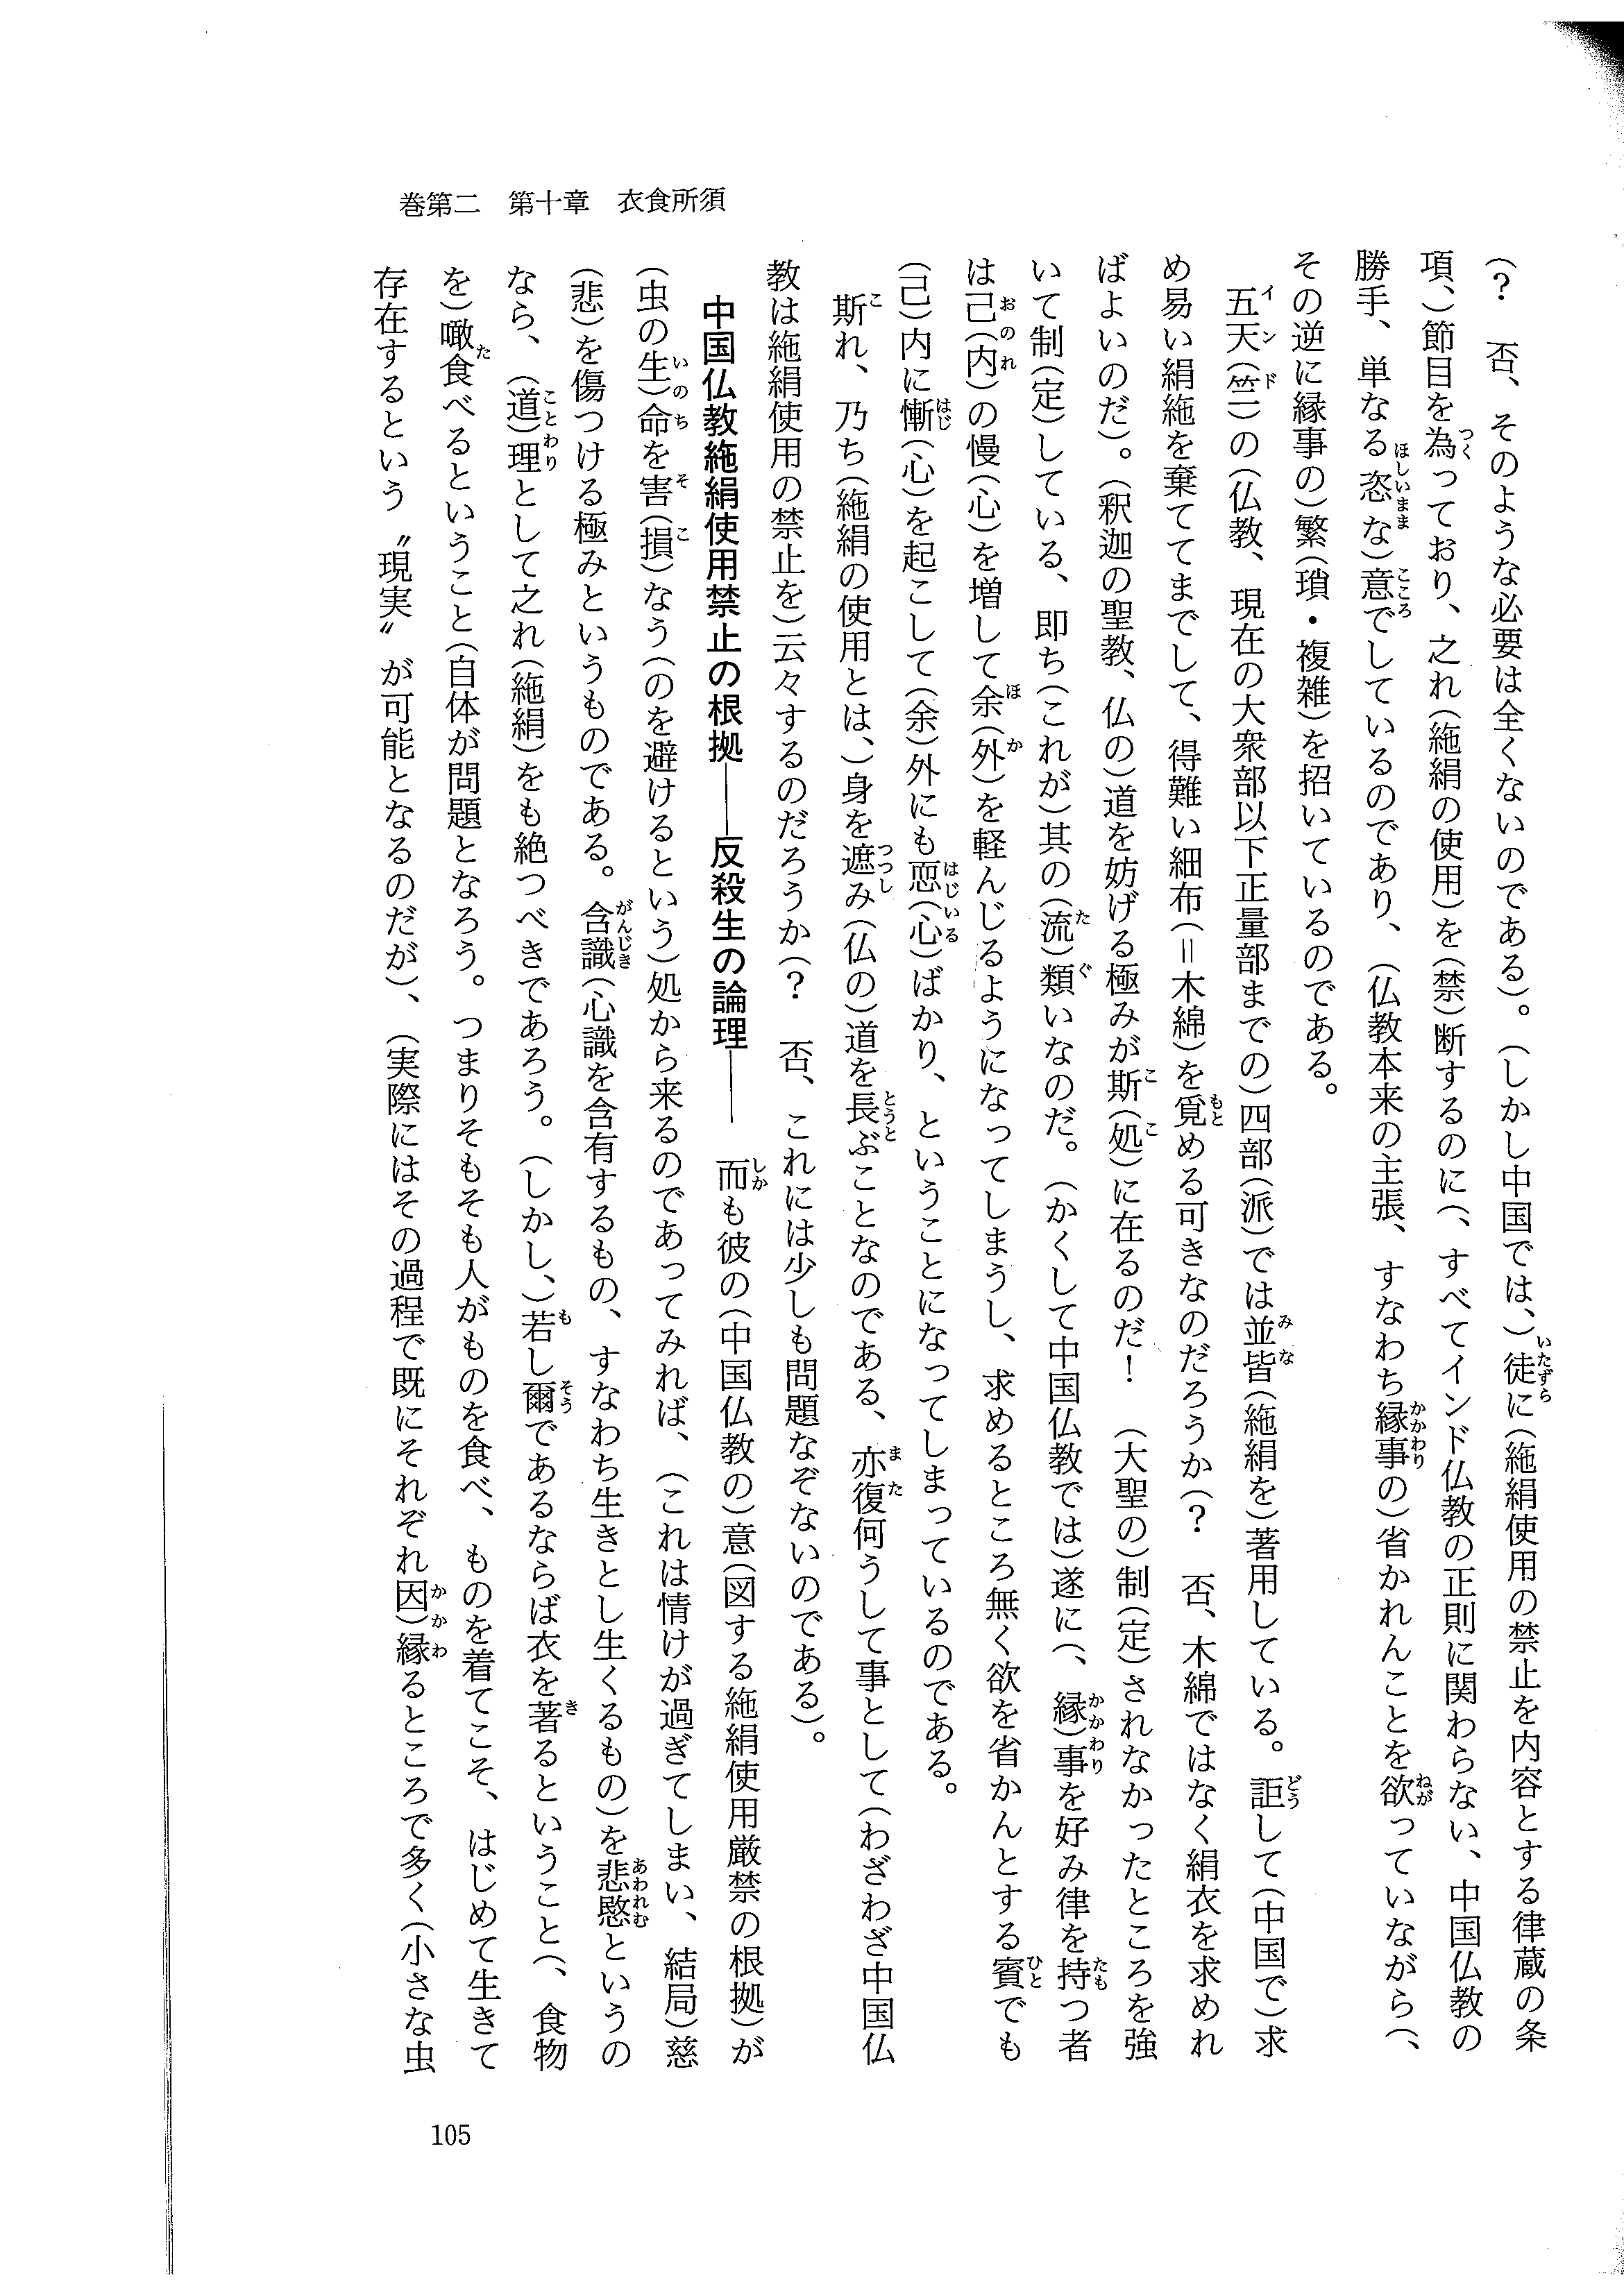 巻第二　第十章　衣食所須
（？　否、そのような必要は全くないのである）。（しかし中国では、）徒に（絁絹使用の禁止を内容とする律蔵の条
項、）節目を為っており、之れ（絁絹の使用）を（禁）断するのに（、すべてインド仏教の正則に関わらない、中国仏教の
勝手、単なる恣な）意でしているのであり、（仏教本来の主張、すなわち縁事の）省かれんことを欲っていながら（、
その逆に縁事の）繁（瑣・複雑）を招いているのである。
五天（竺）の（仏教、現在の大衆部以下正量部までの）四部（派）では並皆（絁絹を）著用している。詎して（中国で）求
め易い絹絁を棄ててまでして、得難い細布（＝木綿）を覓める可きなのだろうか（？　否、木綿ではなく絹衣を求めれ
ばよいのだ）。（釈迦の聖教、仏の）道を妨げる極みが斯（処）に在るのだ！　（大聖の）制（定）されなかったところを強
いて制（定）している、即ち（これが）其の（流）類いなのだ。（かくして中国仏教では）遂に（、縁）事を好み律を持つ者
は己（内）の慢（心）を増して余（外）を軽んじるようになってしまうし、求めるところ無く欲を省かんとする賓でも
（己）内に慚（心）を起こして（余）外にも恧（心）ばかり、ということになってしまっているのである。
斯れ、乃ち（絁絹の使用とは、）身を遮み（仏の）道を長ぶことなのである、亦復何うして事として（わざわざ中国仏
教は絁絹使用の禁止を）云々するのだろうか（？　否、これには少しも問題なぞないのである）。
中国仏教絁絹使用禁止の根拠――反殺生の論理――　而も彼の（中国仏教の）意（図する絁絹使用厳禁の根拠）が
（虫の生）命を害（損）なう（のを避けるという）処から来るのであってみれば、（これは情けが過ぎてしまい、結局）慈
（悲）を傷つける極みというものである。含識（心識を含有するもの、すなわち生きとし生くるもの）を悲愍というの
なら、（道）理として之れ（絁絹）をも絶つべきであろう。（しかし、）若し爾であるならば衣を著るということ（、食物
を）噉食べるということ（自体が問題となろう。つまりそもそも人がものを食べ、ものを着てこそ、はじめて生きて
存在するという〝現実〟が可能となるのだが）、（実際にはその過程で既にそれぞれ因）縁るところで多く（小さな虫
105